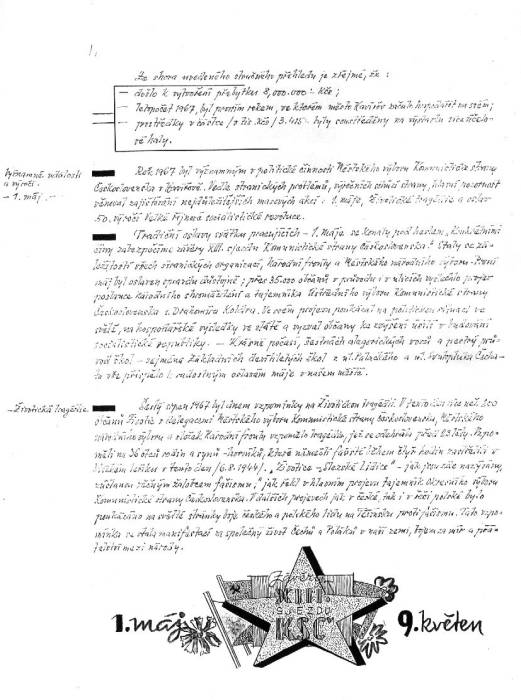 Ze shora uvedeného stručného přehledu je zřejmé, že:
– došlo k vytvoření přebytku 8,000.000.- Kčs;
– letopočet 1967, byl prvním rokem, ve kterém město Havířov začalo hospodařit
– prostředky v částce /v tis. Kčs/ 3.415.- byly soustředěny na výstavbu víceúčelové haly.
Významné události a výročí.
– 1. máj –
Rok 1967 byl významným v politické činnosti Městského výboru Komunistické strany
Československa v Havířově. Vedle stranických problémů, výročních schůzí strany, hlavní pozornost
věnoval zajištění nejdůležitějších masových akcí – 1. máje, Životické tragédie a oslav
50. výročí Velké říjnové socialistické revoluce.
Tradiční oslavy svátku pracujících – 1. máje se konaly pod heslem,
činy zabezpečíme závěry XIII. sjezdu Komunistické strany Československa! Staly se
všech stranických organizací, Národní fronty a Městského národního výboru. První
máj byl oslaven opravdu důstojně; přes 35.000 občanů v průvodu i v ulicích vyslechlo projev
poslance Národního shromáždění a tajemníka Ústředního výboru Komunistické strany
Československa s. Drahomíra Koldra. Ve svém projevu poukázal na politickou situaci ve
světě, na hospodářské výsledky ve státě a vyzval občany ke zvýšení úsilí v budování
socialistické republiky. – Krásné počasí, šestnáct alegorických vozů a pestrý průvod
škol – zejména Základních devítiletých škol z ul. Palackého a ul. Svatopluka Čecha –
to vše přispělo k radostným oslavám máje v našem městě.
– Životická tragédie.
Šestý srpen 1967 byl dnem vzpomínky na Životickou tragédii. V ten den více než 200
občanů Životic s delegacemi Městského výboru Komunistické strany Československa, Městského
národního výboru a složek Národní fronty vzpomnělo tragédie, jež se odehrála před 23 lety. Vzpomněli
na 36 otců rodin a synů – horníků, které nacisté
v tento den /6.8.1944/. „Životice – Slezské Lidice“ – jak jsou zde nazývány,
zůstanou věčnou žalobou fašismu,“ jak řekl v hlavním projevu tajemník Okresního výboru
Komunistické strany Československa. V dalších projevech jak v české, tak i v řeči polské bylo
poukázáno na světlé stránky boje českého a polského lidu na Těšínsku proti fašismu. Tato vzpomínka
se stala manifestací za společný život Čechů a Poláků v naší zemi, bojem za mír a přátelství
mezi národy.
1. máj
Závěry
XIII.
SJEZDU
KSČ
9. květen